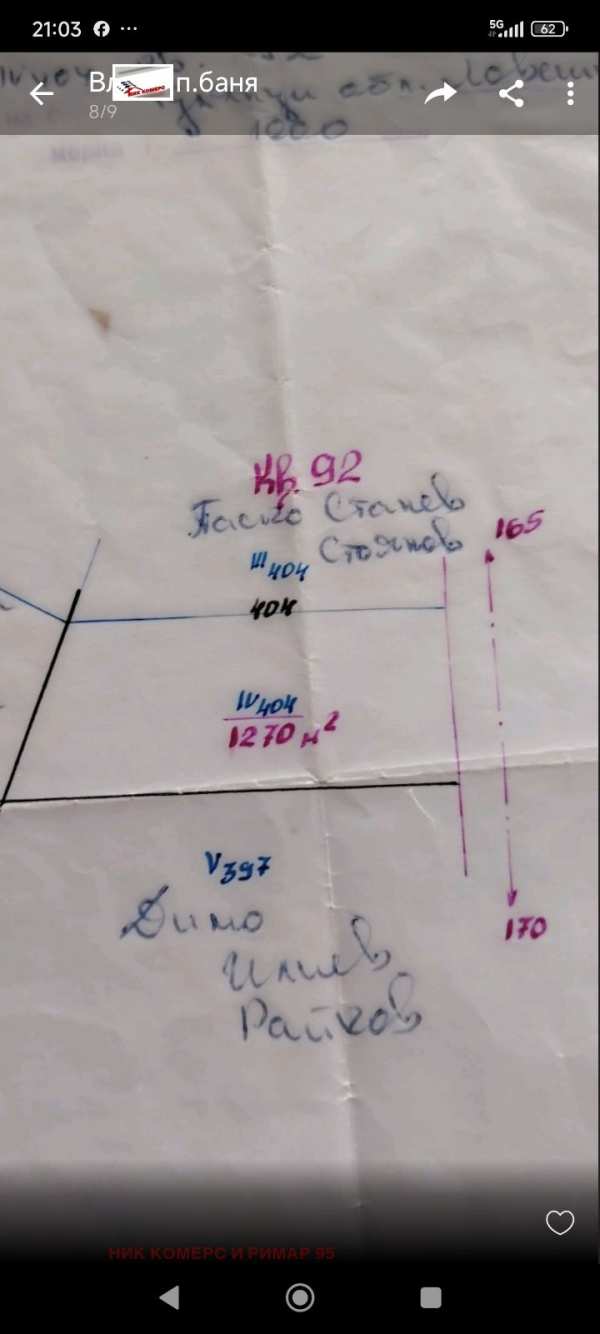 21:03
5G
62
п.баня
8/9
НИК КОМЕРС
обл. Ловешк
1000
Кв. 92
Паско Станев
Стоянов
165
III404
404
IV404
1270 м²
V397
170
Димо
Илиев
Райков
НИК КОМЕРС И РИМАР 95